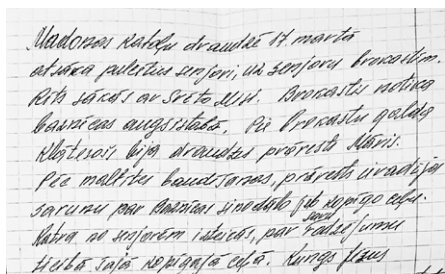 Madonas katoļu draudzē 17. martā
atsāka pulcēties senjori, uz senjoru brokastīm.
Rīts sākās ar Svēto Misi. Brokastis notika
baznīcas augšstāvā. Pie brokastu galda
klātesoši bija draudzes prāvests Māris.
Pēc maltītes baudīšanas, prāvests uzvadīja
sarunu par Baznīcas sinodālo jeb kopīgo ceļu.
Katrs no senjoriem izteicās, par savu redzējumu
ticībā šajā kopīgajā ceļā. Kungs Jēzus